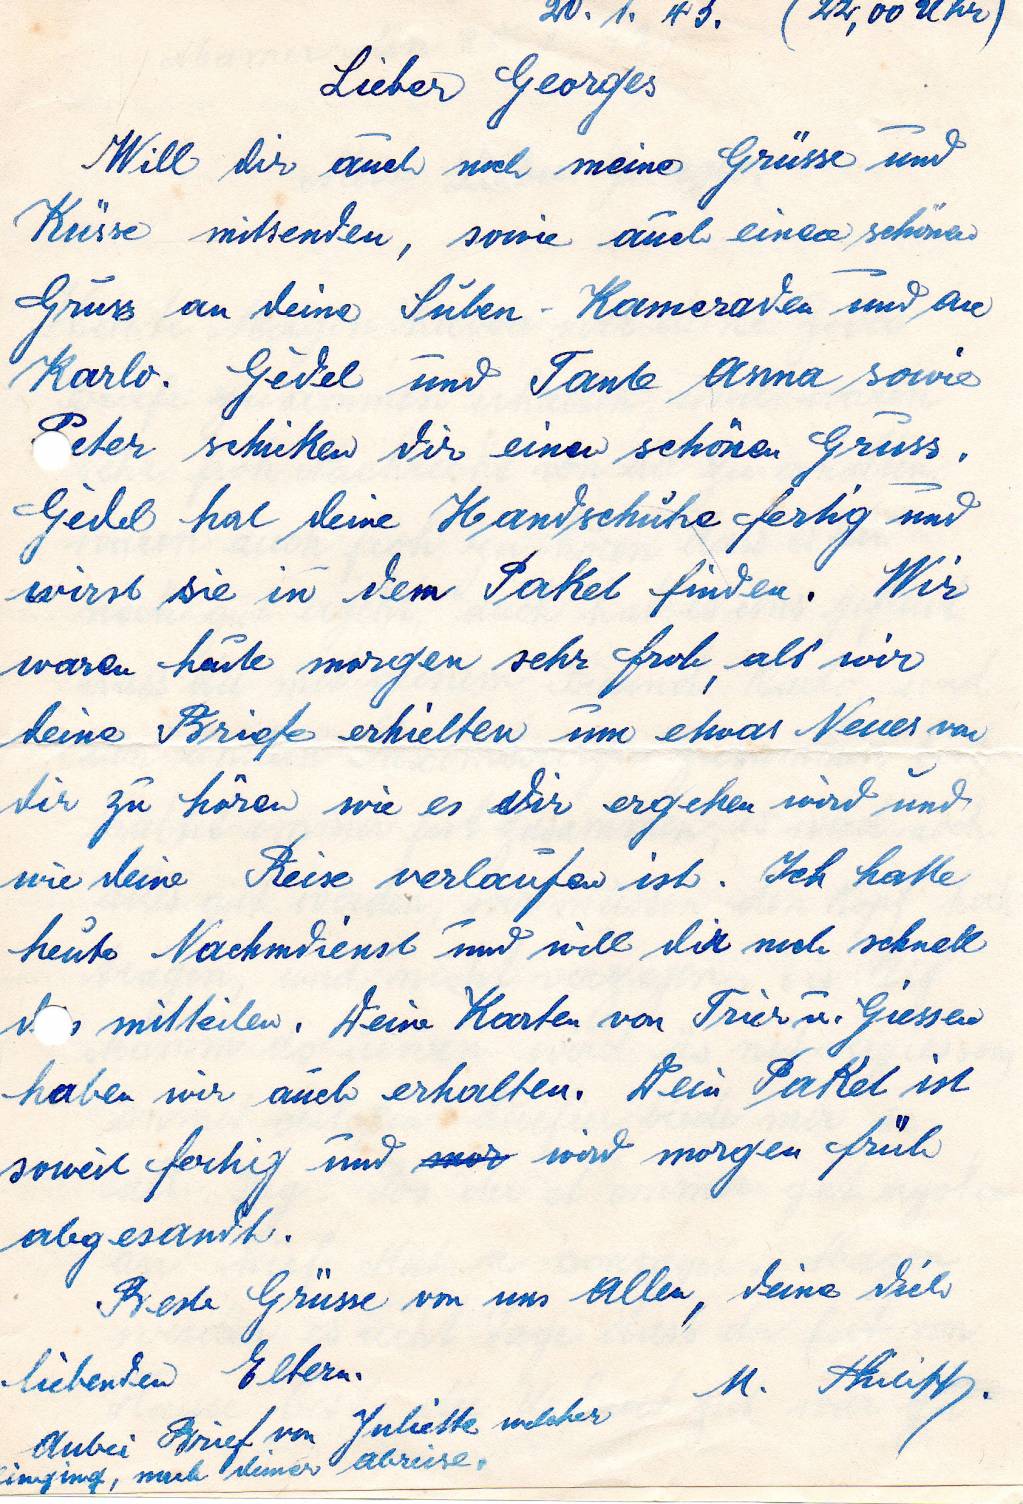 20. 1. 43. (22,00 Uhr)
Lieber Georges
Will dir auch noch meine Grüsse und
Küsse mitsenden, sowie auch einen schönen
Gruss an deine Stuben-Kameraden und an
Karlo. Gédel und Tante Anna sowie
Peter schicken dir einen schönen Gruss.
Gédel hat deine Handschuhe fertig und
wirst sie in dem Paket finden. Wir
waren heute morgen sehr froh, als wir
deine Briefe erhielten um etwas Neues von
dir zu hören wie es dir ergehen wird und
wie deine Reise verlaufen ist. Ich hatte
heute Nachmdienst und will dir noch schnell
das mitteilen. Deine Karten von Trier u. Giessen
haben wir auch erhalten. Dein Paket ist
soweit fertig und wird morgen früh
abgesandt.
Beste Grüsse von uns Allen, deine dich
liebenden Eltern. M. Philipp.
Anbei Brief von Juliette welcher
einging, nach deiner abreise.